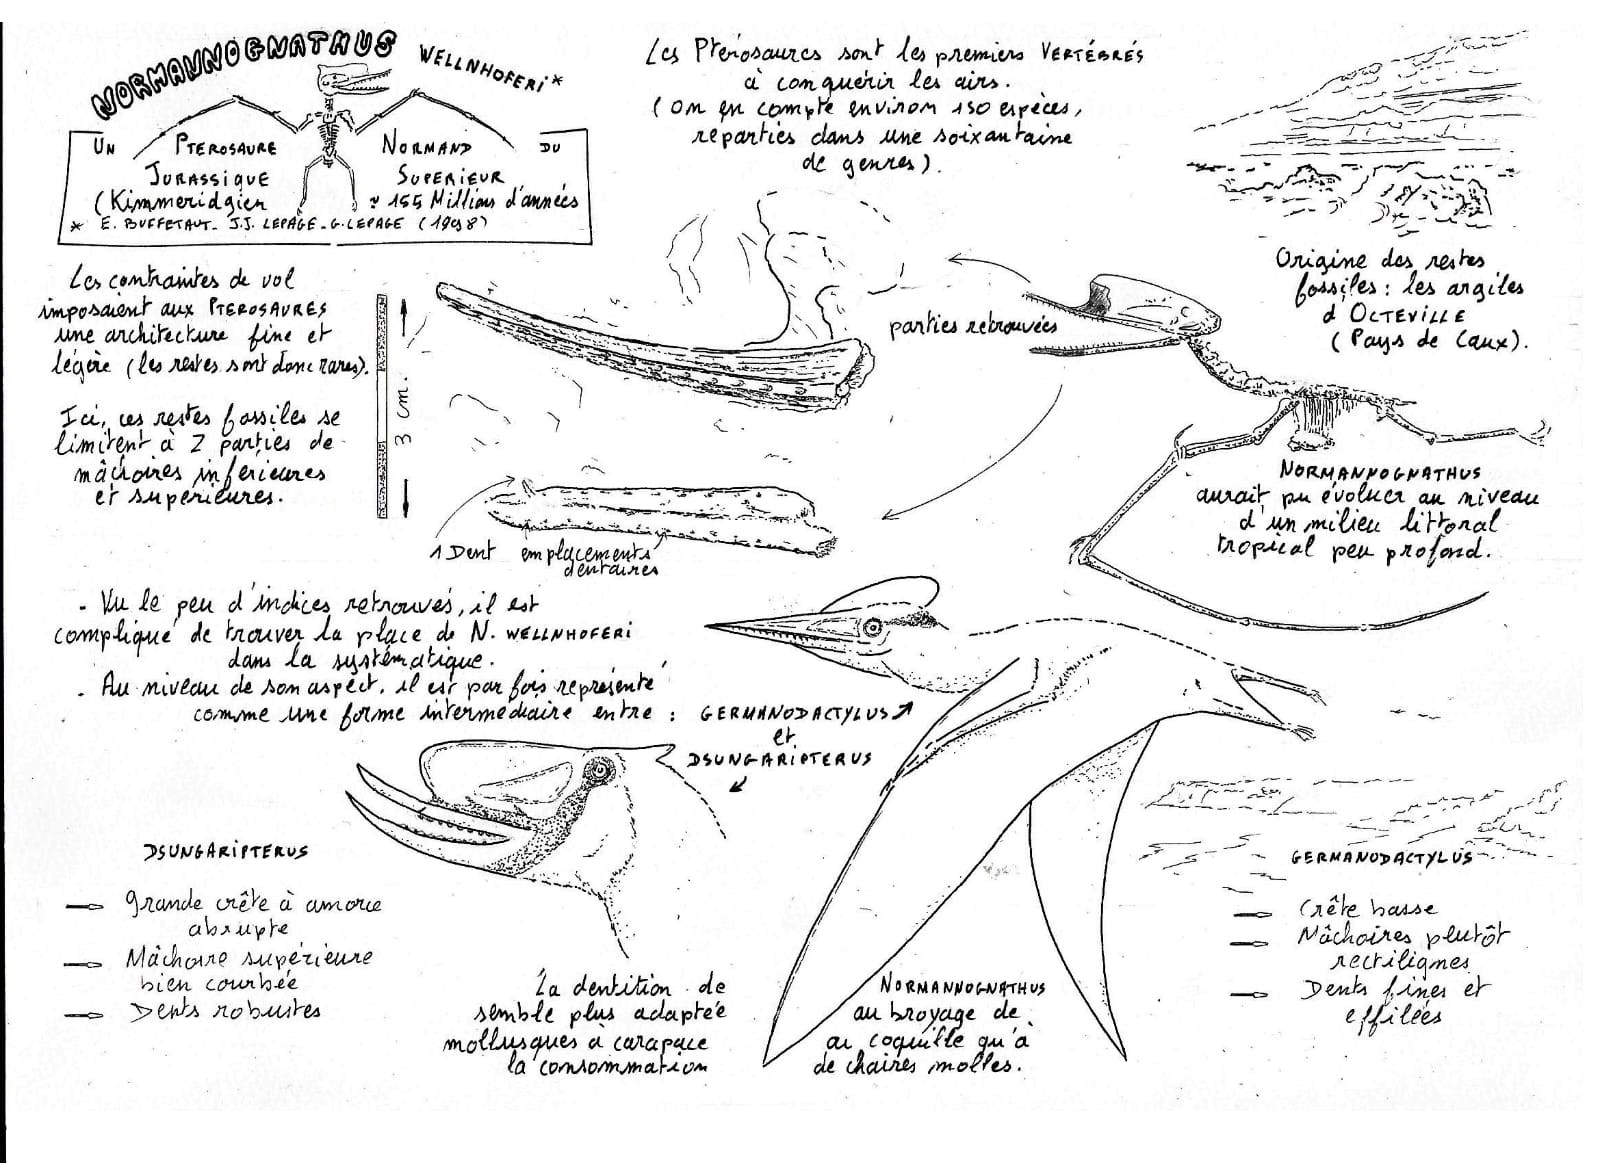 NORMANNOGNATHUS WELLNHOFERI*
UN PTEROSAURE NORMAND DU
JURASSIQUE SUPERIEUR
(Kimmeridgien ≈ 155 Millions d'années
* E. BUFFETAUT - J.J. LEPAGE - G. LEPAGE (1998)
Les Pterosaures sont les premiers VERTÉBRÉS
à conquérir les airs.
(On en compte environ 150 espèces,
reparties dans une soixantaine
de genres).
Origine des restes
fossiles : les argiles
d'OCTEVILLE
(Pays de Caux).
Les contraintes de vol
imposaient aux PTEROSAURES
une architecture fine et
légère (les restes sont donc rares).
Ici, ces restes fossiles se
limitent à 2 parties de
mâchoires inférieures
et supérieures.
3 cm.
parties retrouvées
1 Dent emplacements
dentaires
NORMANNOGNATHUS
aurait pu évoluer au niveau
d'un milieu littoral
tropical peu profond.
- Vu le peu d'indices retrouvés, il est
compliqué de trouver la place de N. WELLNHOFERI
dans la systématique.
- Au niveau de son aspect, il est parfois représenté
comme une forme intermédiaire entre : GERMANODACTYLUS
et
DSUNGARIPTERUS
DSUNGARIPTERUS
Grande crête à amorce
abrupte
Mâchoire supérieure
bien courbée
Dents robustes
La dentition de NORMANNOGNATHUS
semble plus adaptée au broyage de
mollusques à carapace ou coquille qu'à
la consommation de chaires molles.
GERMANODACTYLUS
Crête basse
Mâchoires plutôt
rectilignes
Dents fines et
effilées